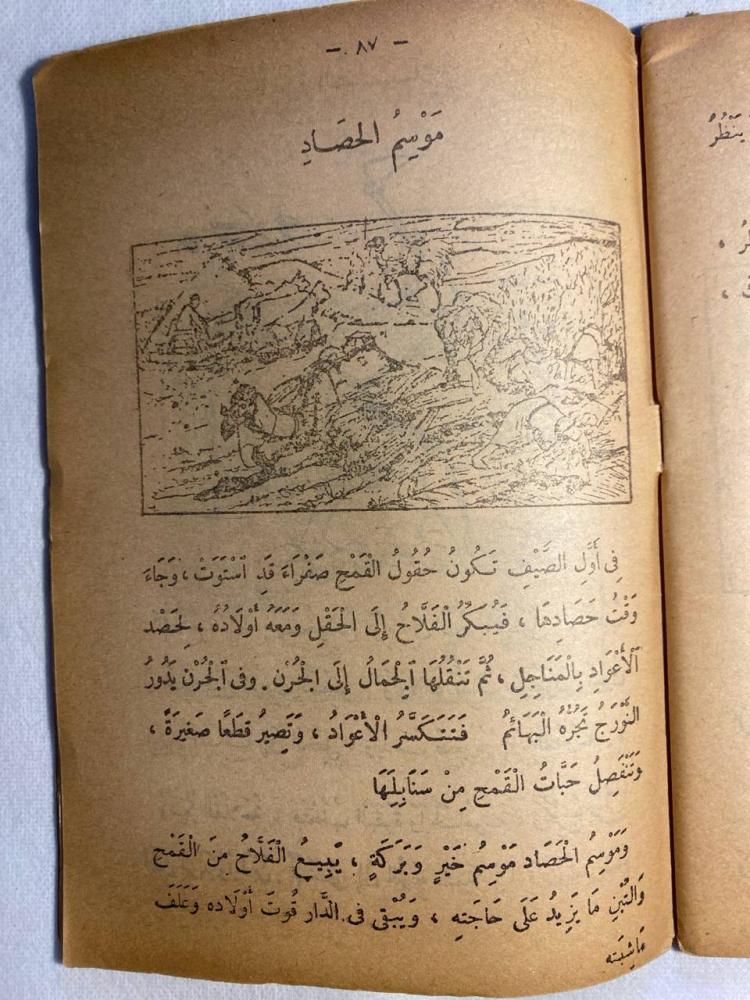 - ٨٧ -
مَوْسِمُ الحَصَادِ
فِى أَوَّلِ الصَّيْفِ تَكُونُ حُقُولُ الْقَمْحِ صَفْرَاءَ قَدِ ٱسْتَوَتْ ، وَجَاءَ
وَقْتُ حَصَادِهَا ، فَيُبَكِّرُ الْفَلَّاحُ إِلَى الْحَقْلِ وَمَعَهُ أَوْلَادُهُ ، لِحَصْدِ
ٱلْأَعْوَادِ بِالْمَنَاجِلِ ، ثُمَّ تَنْقُلُهَا ٱلْجِمَالُ إِلَى الْجُرْنِ . وفى ٱلْجُرْنِ يَدُورُ
النَّوْرَجُ تَجُرُّهُ الْبَهَائِمُ فَتَتَكَسَّرُ الْأَعْوَادُ ، وَتَصِيرُ قِطَعًا صَغِيرَةً ،
وَتَنْفَصِلُ حَبَّاتُ الْقَمْحِ مِنْ سَنَابِلِهَا
وَمَوْسِمُ الْحَصَادِ مَوْسِمُ خَيْرٍ وَبَرَكَةٍ ، يَبِيعُ الْفَلَّاحُ مِنَ الْقَمْحِ
وَالتِّبْنِ مَا يَزِيدُ عَلَى حَاجَتِهِ ، وَيُبْقِى فى الدَّارِ قُوتَ أَوْلَادِهِ وَعَلَفَ
مَاشِيَتِه
يَنْظُرُ